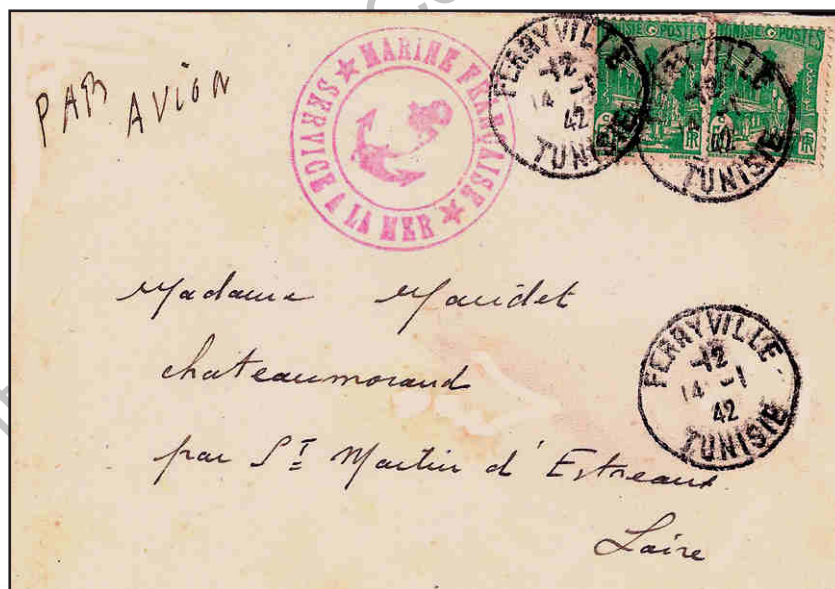 PAR AVION
MARINE FRANÇAISE
SERVICE A LA MER
FERRYVILLE
12
14 -1
42
TUNISIE
TUNISIE POSTES
RF
TUNISIE POSTES
RF
TUNISIE
Madame Maridet
chateaumorand
par St Martin d'Estreaux
Loire
FERRYVILLE -
12
14 -1
42
TUNISIE